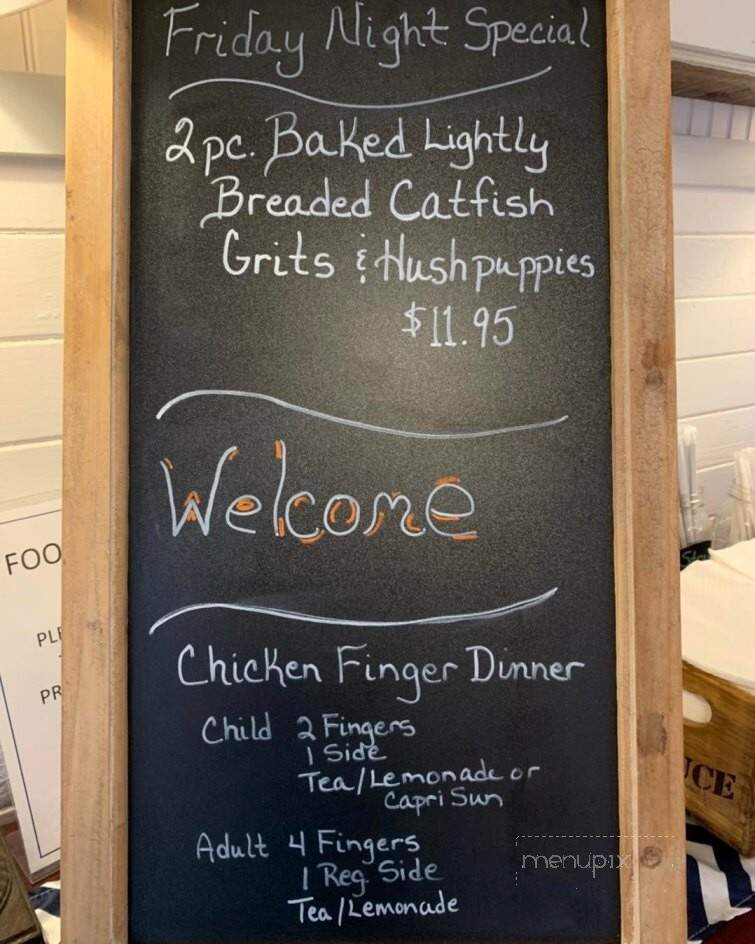 Friday Night Special
2 pc. Baked Lightly
Breaded Catfish
Grits & Hushpuppies
$11.95
Welcome
Chicken Finger Dinner
Child 2 Fingers
1 Side
Tea/Lemonade or
Capri Sun
Adult 4 Fingers
1 Reg. Side
Tea/Lemonade
FOO
PLE
PR
UCE
menupix